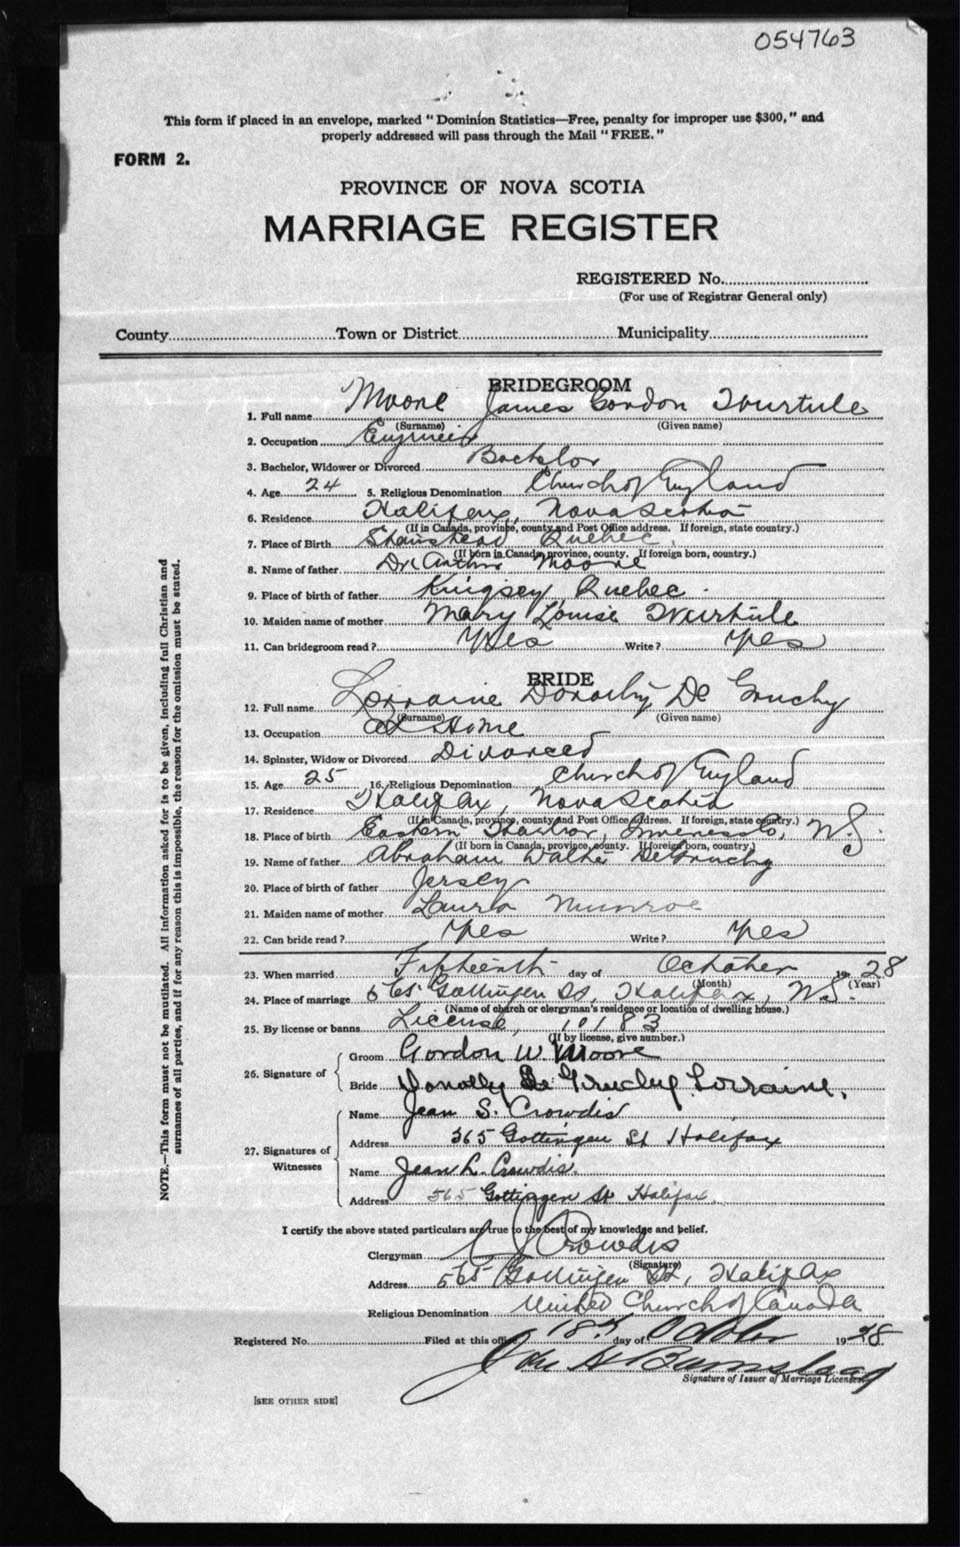 054763
This form if placed in an envelope, marked "Dominion Statistics—Free, penalty for improper use $300," and
properly addressed will pass through the Mail "FREE."
FORM 2.
PROVINCE OF NOVA SCOTIA
MARRIAGE REGISTER
REGISTERED No.
(For use of Registrar General only)
County Town or District Municipality
NOTE.—This form must not be mutilated. All information asked for is to be given, including full Christian and
surnames of all parties, and if for any reason this is impossible, the reason for the omission must be stated.
BRIDEGROOM
1. Full name Moore James Gordon
(Surname) (Given name)
2. Occupation Engineer
3. Bachelor, Widower or Divorced Bachelor
4. Age 24 5. Religious Denomination Church of England
6. Residence Halifax, Nova Scotia
(If in Canada, province, county and Post Office address. If foreign, state country.)
7. Place of Birth Quebec
(If born in Canada, province, county. If foreign born, country.)
8. Name of father Dr. Arthur Moore
9. Place of birth of father Kingsey Quebec
10. Maiden name of mother Mary Louise
11. Can bridegroom read? Yes Write? Yes
BRIDE
12. Full name Lorraine Dorothy De Gruchy
(Surname) (Given name)
13. Occupation at Home
14. Spinster, Widow or Divorced Divorced
15. Age 25 16. Religious Denomination Church of England
17. Residence Halifax, Nova Scotia
(If in Canada, province, county and Post Office Address. If foreign, state country.)
18. Place of birth Eastern Harbor, Inverness Co, N.S.
(If born in Canada, province, county. If foreign born, country.)
19. Name of father Abraham Walter DeGruchy
20. Place of birth of father Jersey
21. Maiden name of mother Laura Munroe
22. Can bride read? Yes Write? Yes
23. When married Fifteenth day of October 1928
(Month) (Year)
24. Place of marriage Gottingen St, Halifax, N.S.
(Name of church or clergyman's residence or location of dwelling house.)
25. By license or banns License, 10183
(If by license, give number.)
26. Signature of
Groom Gordon W Moore
Bride Dorothy De Gruchy Lorraine.
27. Signatures of
Witnesses
Name Jean S. Crowdis
Address 565 Gottingen St Halifax
Name Jean L. Crowdis.
Address 565 Gottingen St Halifax.
I certify the above stated particulars are true to the best of my knowledge and belief.
Clergyman Crowdis
(Signature)
Address 565 Gottingen St, Halifax
Religious Denomination United Church of Canada
Registered No. Filed at this office 18 day of October 1928
Signature of Issuer of Marriage Licenses
[SEE OTHER SIDE]